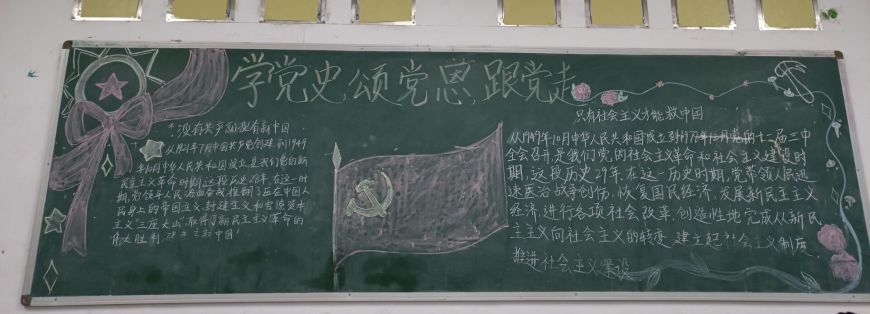 学党史,颂党恩,跟党走
没有共产党就没有新中国
从1921年7月中国共产党创建到1949
年10月中华人民共和国成立,是我们党的新
民主主义革命时期,这段历史28年.在这一时
期,党领导人民浴血奋战推翻了压在中国人
民身上的帝国主义,封建主义和官僚资本
主义"三座大山",取得了新民主主义革命的
伟大胜利,建立新中国!
只有社会主义才能救中国
从1949年10月中华人民共和国成立到十一届三中
全会召开是我们党的社会主义革命和社会主义建设时
期,这段历史29年.在这一历史时期,党带领人民迅
速医治战争创伤,恢复国民经济,发展新民主主义
经济,进行各项社会改革,创造性地完成从新民
主主义向社会主义的转变,建立起社会主义制度
推进社会主义建设